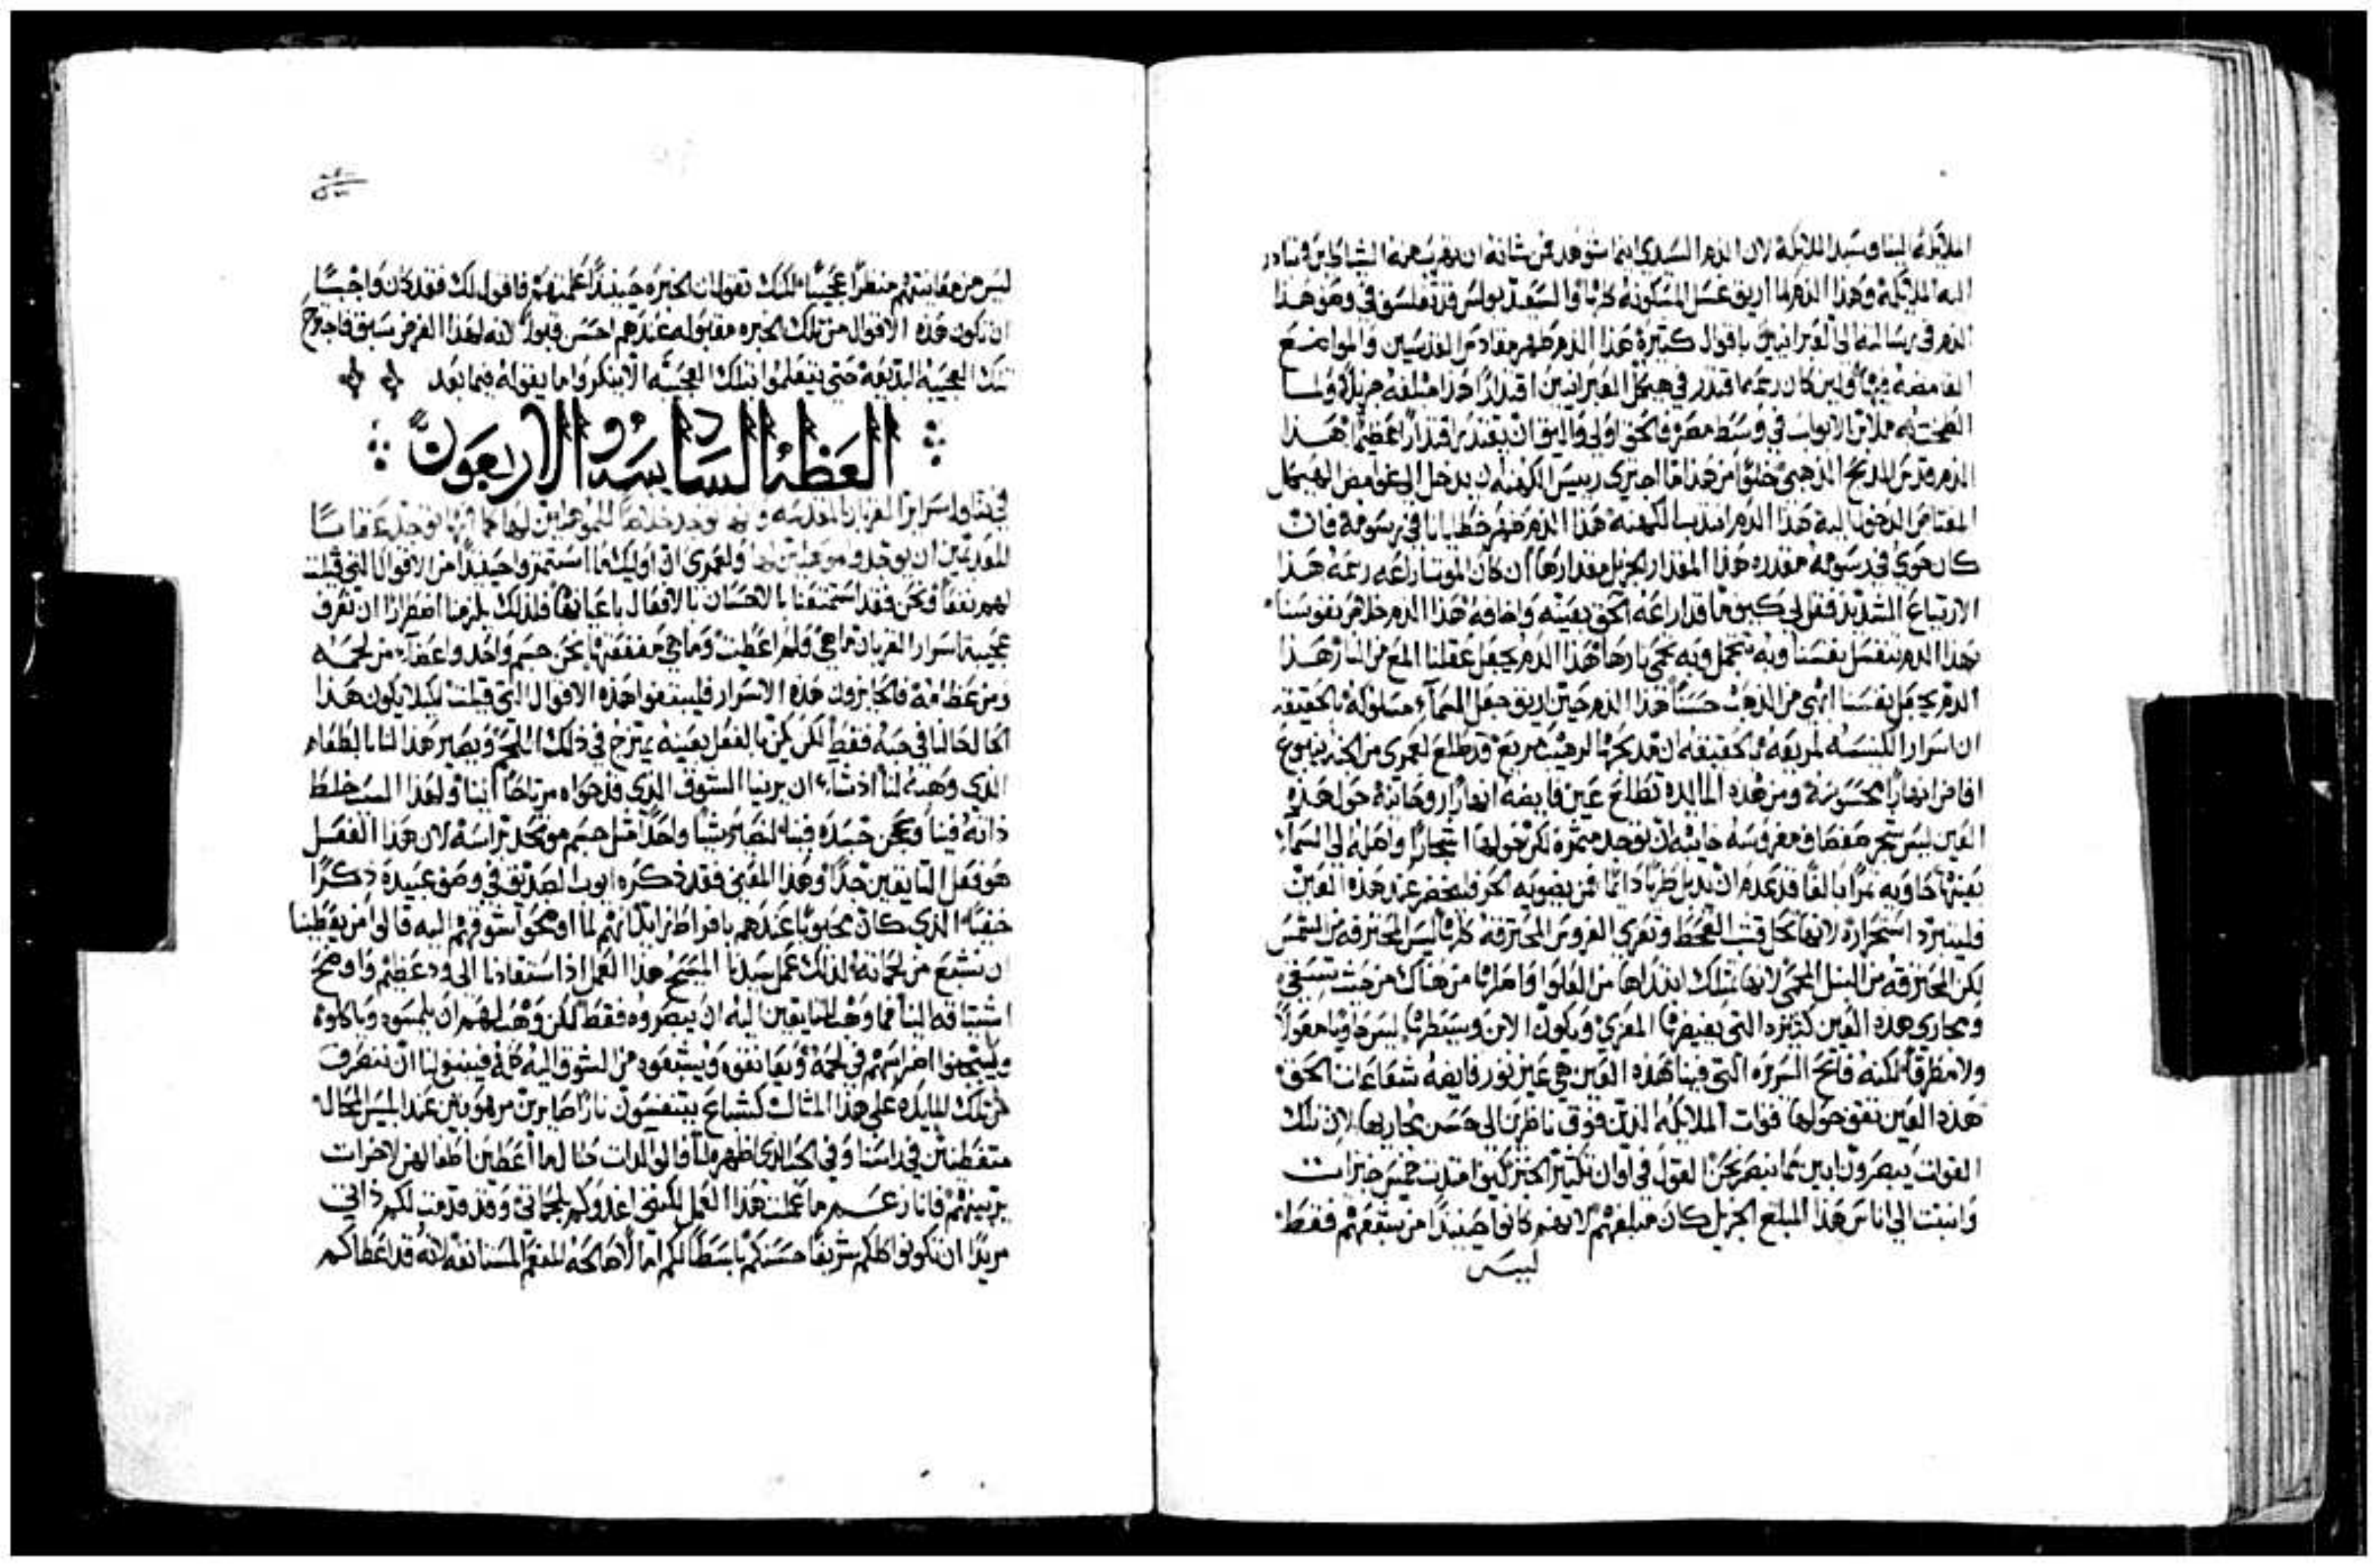 الملائكه الينا وسيد الملائكة لان الدم السيدى اينما شوهد فمن شانه ان يهرب منه الشياطين وتبادر
اليه الملائكة وهذا الدم لما اريق غسل المسكونه كلها والسعيد بولس قد تفلسف في وصف هذا
الدم في رسالته الى العبرانيين باقوال كثيرة هذا الدم طهر مقادس القدسين والمواضع
الغامضه فيها ولين كان رسمه اقتدر في هيكل العبرانيين اقتدارا هذا مبلغه جزيلا ولما
لطخت به ملابن الابواب في وسط مصر فالحق اولى واليق ان يقتدر اقتدارا عظيما هذا
الدم قدس المدبح الذهبي خلوا من هذا ما اجترى رييس الكهنه ان يدخل الى غوامض الهيكل
هذا الدم انتدب الكهنه هذا الدم طهر خطايانا في رسومه فان
كان حوى في رسومه مقدره هذا المقدار الجزيل مقدارها ان كان الموت ارتاعه رسمه هذا
الارتياع الشديد فقل لى كيف ما قد ارتاعه الحق بعينه واخافه هذا الدم خلاص نفوسنا
بهذا الدم تنغسل نفسنا وبه تتجمل وبه تحمى نارها هذا الدم يجعل عقلنا المع من النار هذا
الدم يجعل نفسنا ابهى من الذهب حسنا هذا الدم حين اريق جعل السماء مسلوكه بالحقيقه
ان اسرار الكنيسه مريعه بالحقيقه ان مدبحها لرهيب مريع قد طلع لعمرى من الجنه ينبوع
افاض انهارا محسوسة ومن هذه المايده تطلع عين فايضه انهارا روحانيه حول هذه
العين ليس شجر صفصاف مغروسه خايبه ان توجد مثمره لكن حولها اشجارا واصله الى السماء
بعينها حاويه ثمرا يانعا قد عدم ان يذبل طريا دايما فمن يضويه الحر فليحضر عند هذه العين
فليبرد استحراره لانها تحل قشب القحط وتعزي العروس المحترقه كلها ليس المحترقه من الشمس
لكن المحترقه من النبل المحمى لانها تملك ابتداها من العلو واصلها من هناك من حيث تستقى
ومجارى هذه العين كثيره التى يفيضها المعزي ويكون الابن وسيطها ليس حاويا معولا
ولا مطرقا لكنه فاتح السريره التى فينا هذه العين هي عين نور فايضه شعاعات الحق
هذه العين تقف حولها قوات الملايكه الذين فوق ناظرين الى حسن مجاريها لان تلك
القوات يبصرون ابين مما نبصر نحن القول في اوان تكثير الخبز كيف امتدت خمس خبزات
وانبثت الى اناس هذا المبلغ الجزيل كان مبلغهم لانهم كانوا حينيذ من شبعهم فقط
ليس
ليس من معاينتهم منظرا عجيبا لكنك تقول ان الخبره حينيذ اعلمتهم فاقول لك فقد كان واجبا
ان تكون هذه الاقوال من تلك الخبره مقبوله عندهم احسن قبولا لانه لهذا الغرض سبق فاجترح
تلك العجيبه البديعه حتى يتعلموا بتلك العجيبه الا ينكروا ما يقوله فيما بعد
العظة السادسه والاربعون
في تناول اسرار القربان المقدسه وانها توجد خلاصا للموهلين لها كما انها توجد عقابا
للمقدمين ان يوخذوا موهلين لها ولعمرى ان اوليك ما استثمروا حينيذ من الاقوال التى قيلت
لهم نفعا ونحن فقد استمتعنا بالاحسان بالافعال باعيانها فلذلك يلزمنا اضطرارا ان نعرف
عجيبة اسرار القربان ما هي ولم اعطيت وما هي منفعتها نحن جسم واحد واعضاء من لحمه
ومن عظامه فالحايزون هذه الاسرار فليتبعوا هذه الاقوال التى قيلت لكيلا يكون هذا
الحال حالنا في حبه فقط لكن لكن بالفعل بعينه يمتزج في ذلك اللحم ويصير هذا لنا بالطعام
الذي وهبه لنا اذ شاء ان يرينا الشوق الذي قد حواه مرتاحا الينا ولهذا السبب خلط
ذاته فينا وعجن جسده فينا لنصير شيا واحدا مثل جسم موتحد براسه لان هذا الفعل
هو فعل التايقين جدا وهذا المعنى فقد ذكره ايوب الصديق في وصف عبيده ذكرا
خفيا الذي كان محبوبا عندهم بافراط زايد لانهم لما اوضحوا شوقهم اليه قالوا من يعطينا
ان نشبع من لحمانه لذلك عمل سيدنا المسيح هذا العمل اذ استقادنا الى ود عظيم واوضح
اشتياقه الينا فما وهب للتايقين اليه ان يبصروه فقط لكن وهب لهم ان يلمسوه وياكلوه
ويثبتوا اضراسهم في لحمه ويعانقوه ويشبعوه من الشوق اليه كله فينبغي لنا ان ننصرف
من تلك المايده على هذا المثال كسباع يتنفسون نارا صايرين مرهوبين عند ابليس المحال
متفطنين في راسنا وفي الحب الذى اظهره لنا فالوالدات طالما اعطين اطفالهن لاخرات
يربينهم فانا زعم ما عملت هذا العمل لكننى اغذوكم بلحماني وقد قدمت لكم ذاتى
مريدا ان تكونوا كلكم شريفا حسبكم باسطا لكم امالا صالحه للنعم المستانفه لانه قد اعطاكم